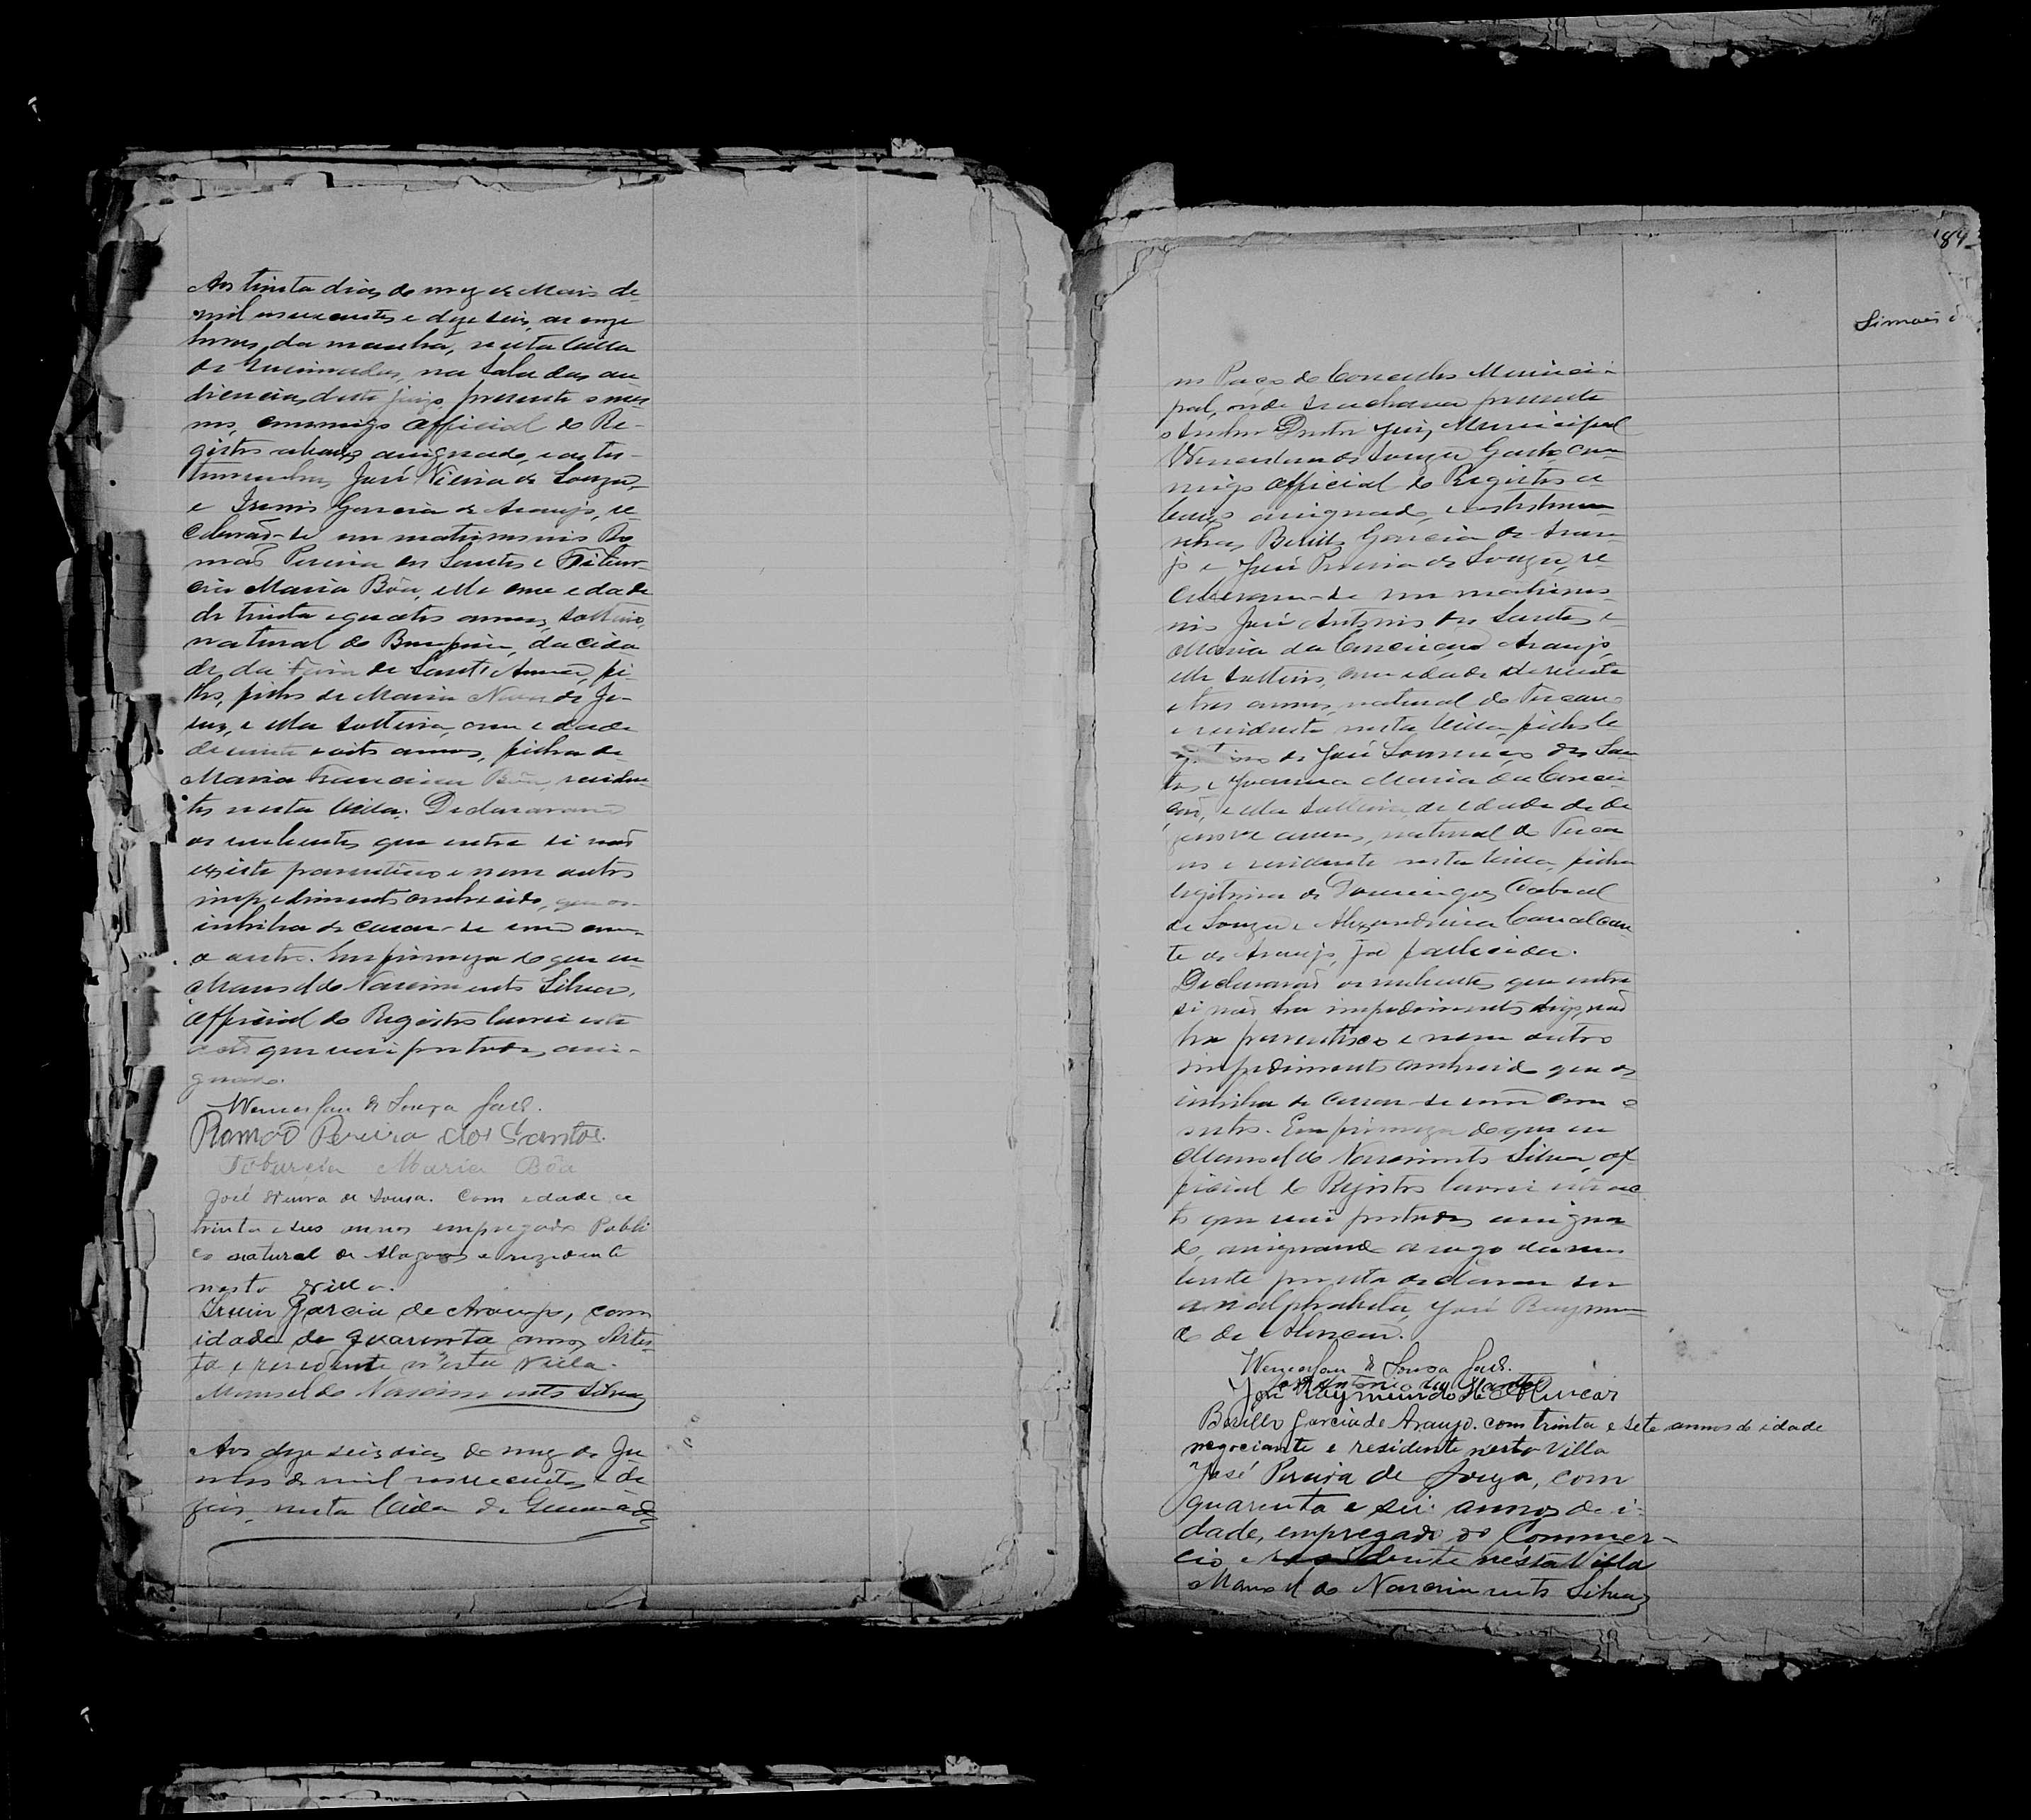 Aos trinta dias do mez de Maio de
mil novecentos e deze seis, as onze
horas da manhã, nesta Villa
de Queimadas, na Sala das au
diencias deste juizo, presente o mes
mo, commigo Official do Re-
gistro abaixo assignado, e as tes-
temunhas José Vieira de Souza,
e Irenio Garcia de Araujo, re
ceberão-se em matrimonio Ro
mão Pereira dos Santos e Tibur-
cia Maria Bôa, elle com edade
de trinta e quatro annos, solteiro,
natural do Bomfim, da cida
de da Feira de Sant'Anna, fi-
lho, filho de Maria de Je-
sus, e ella solteira, com edade
de vinte e oito annos, filha de
Maria Francisca Bôa, residen
tes nesta Villa. Declararam
os nubentes que entre si não
existe parentesco e nem outro
impedimento conhecido, que os
inhiba de casar-se um com
o outro. Em firmeza do que eu
Manoel do Nascimento Silva,
Official do Registro lavrei este
acto que vai por todos assi-
gnado.
Wenceslau de Souza
Romão Pereira dos Santos.
Tiburcia Maria Bôa
José Vieira de Sousa. Com edade de
trinta e seis annos empregado Publi
co natural de Alagoas e rezidente
nesta Villa.
Irenio Garcia de Araujo, com
idade de quarenta annos Artis-
ta e residente n'esta Villa.
Manoel do Nascimento Silva
Aos deze seis dias do mez de Ju
nho de mil novecentos e de
zeis, nesta Villa de Queimadas
184
Simões
no Paço do Conselho Munici-
pal, onde se achava presente
o Senhor Doutor Juiz Municipal
Wenceslau de Souza com
migo Official do Registro a
baixo assignado, e as testemu
nhas, Berillo Garcia de Arau
jo e José Pereira de Souza, re
ceberam-se em matrimo
nio José Antonio dos Santos e
Maria da Conceição Araujo,
elle solteiro, com edade de vinte
e tres annos, natural do Tucano
e residente nesta Villa, filho le
gitimo de José Lourenço dos San
tos e Joanna Maria da Concei
ção, e ella solteira, de edade de de
zenove annos, natural do Tuca
no e residente nesta Villa, filha
legitima de Domingos Cabral
de Souza e Alexandrina Cavalcan
te de Araujo, já fallecida.
Declararão os nubentes que entre
si não ha impedimento digo, não
ha parentesco e nem outro
impedimento conhecido que os
inhiba de casar-se um com o
outro. Em firmeza do que eu
Manoel do Nascimento Silva, of
ficial do Registro lavrei este ac
to que vai por todos assigna
do, assignando a rogo da nu
bente por esta declarar ser
analphabeta, José Raymun
do de Alencar.
Wenceslau de Sousa
José Antonio dos Santos
José Raymundo de Alencar
Berillo Garcia de Araujo. com trinta e sete annos de idade
negociante e residente nesta Villa
José Pereira de Souza, com
quarenta e seis annos de i-
dade, empregado do Commer-
cio e residente nésta Villa
Manoel do Nascimento Silva